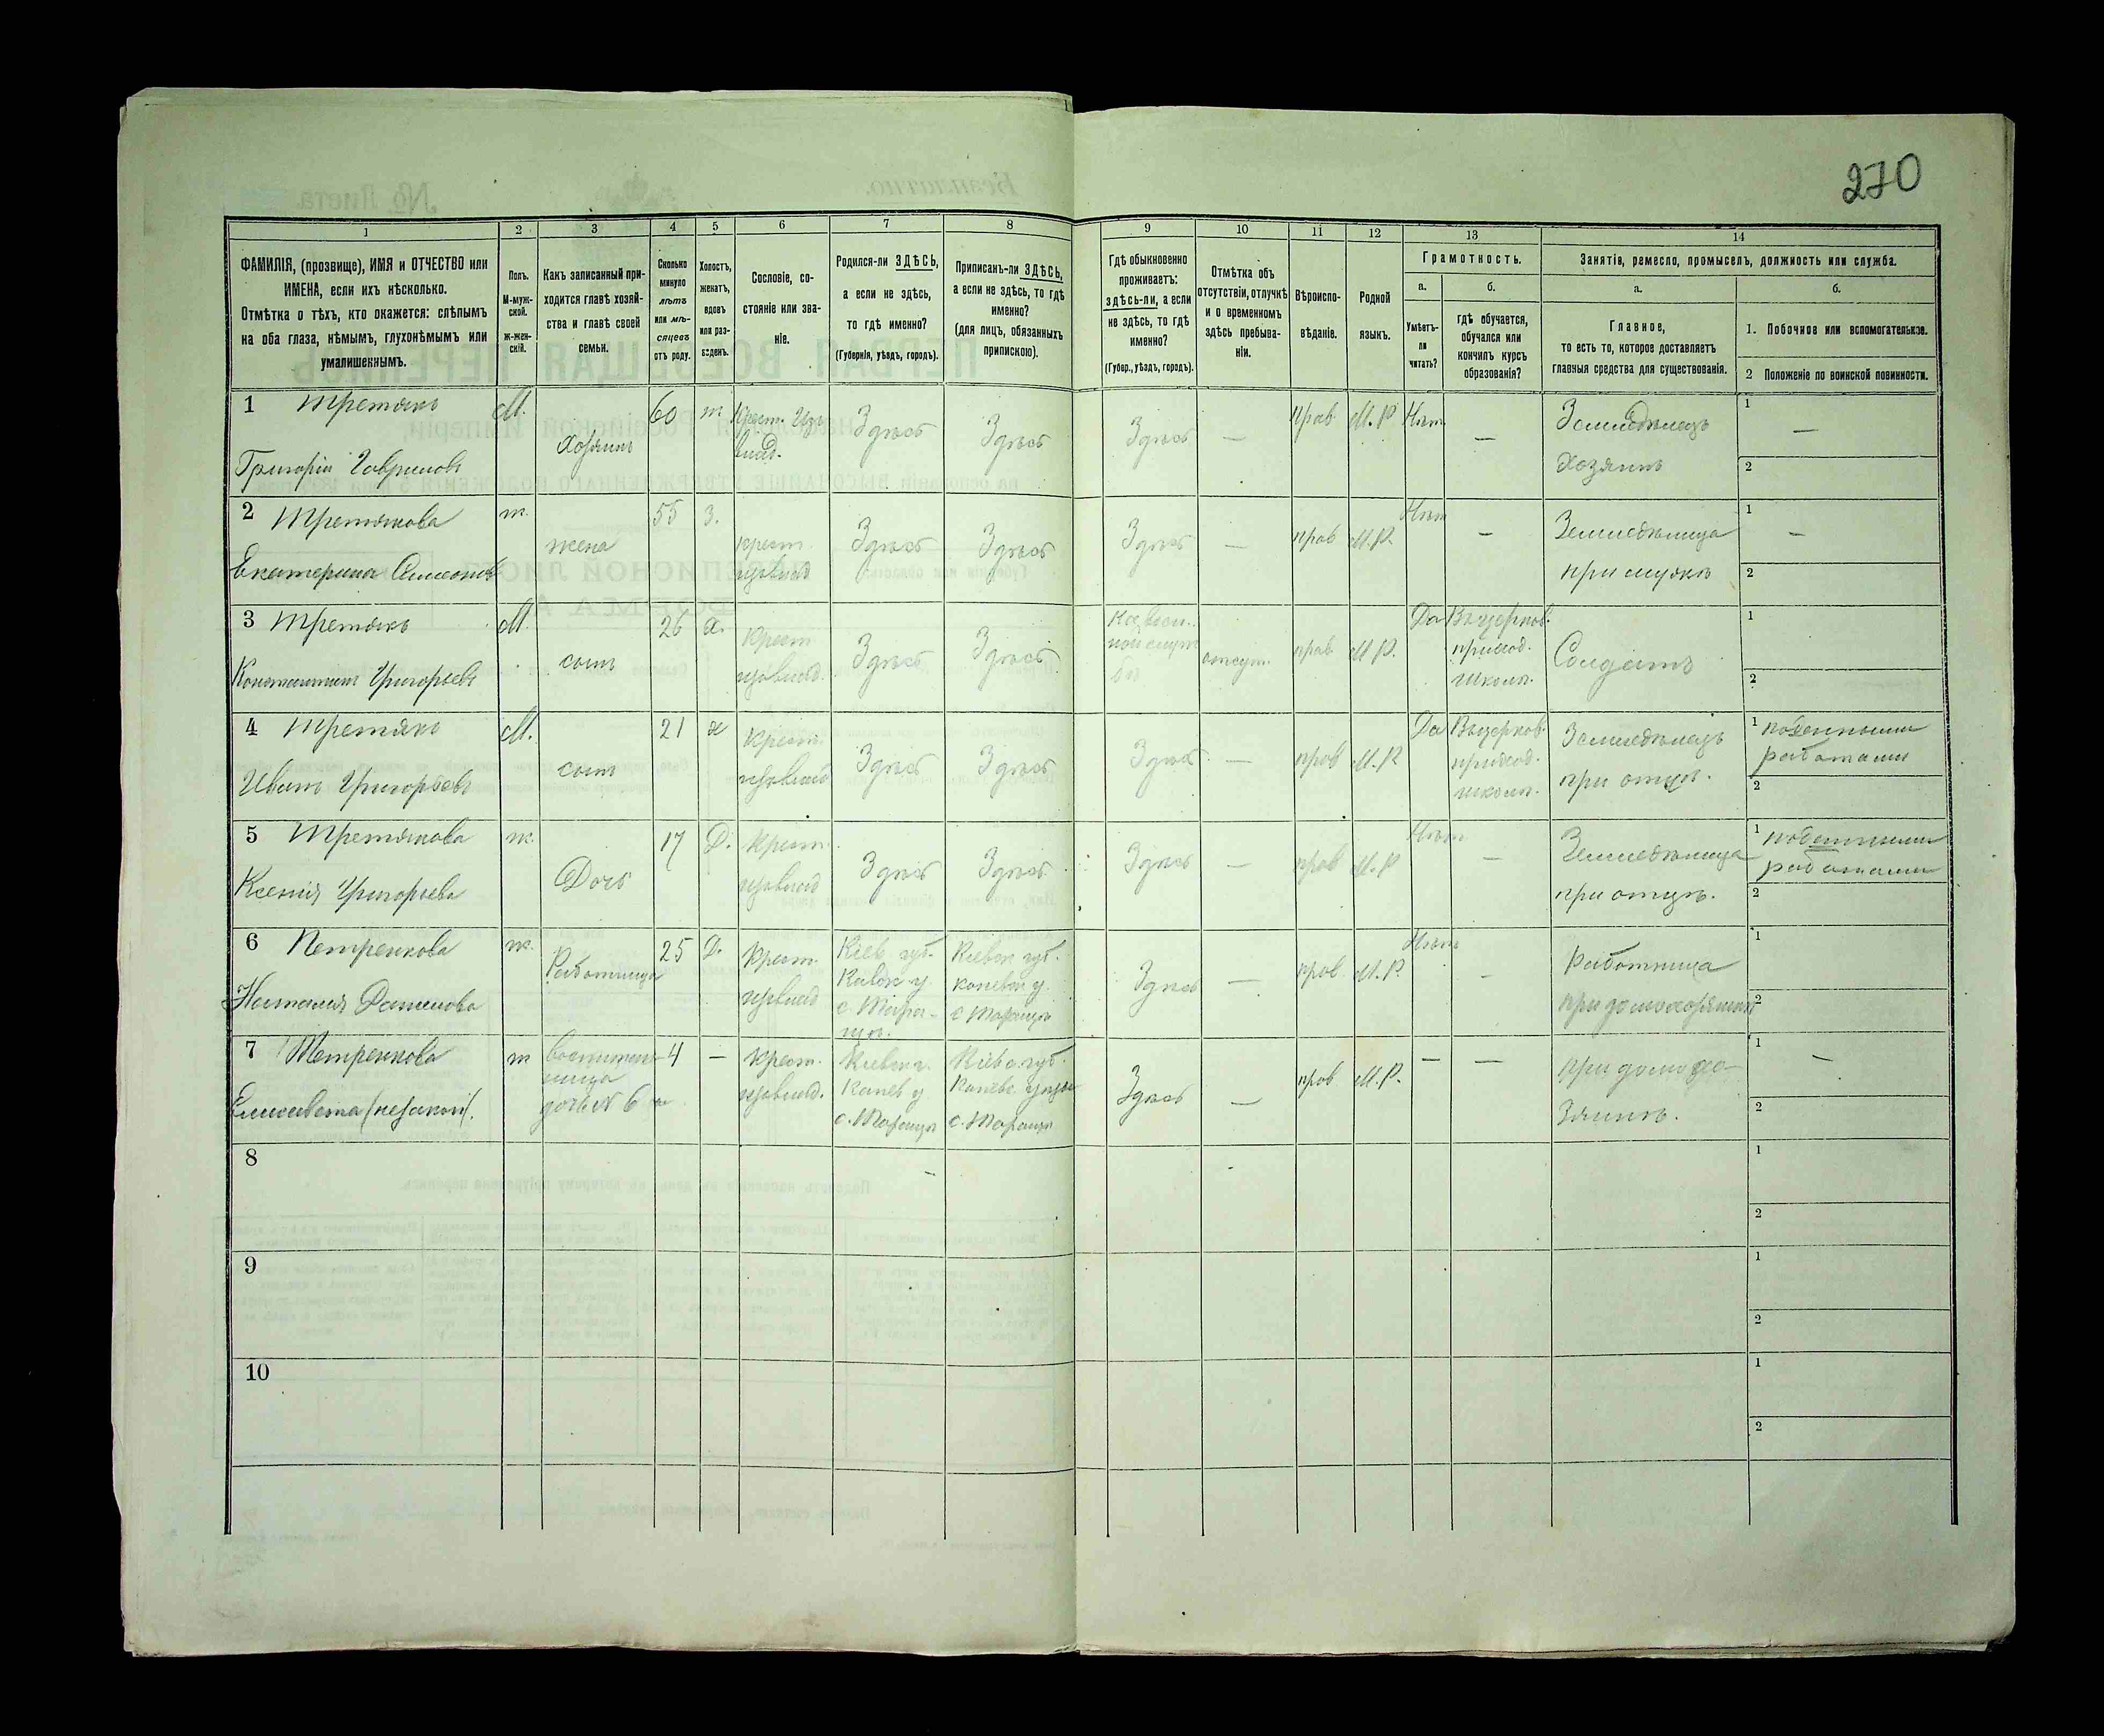 270
1
2
3
4
5
6
7
8
9
10
11
12
13
14
ФАМИЛІЯ, (прозвище), ИМЯ и ОТЧЕСТВО или
ИМЕНА, если ихъ нѣсколько.
Отмѣтка о тѣхъ, кто окажется: слѣпымъ
на оба глаза, нѣмымъ, глухонѣмымъ или
умалишеннымъ.
Полъ.
М-муж-
ской.
Ж-жен-
скій.
Какъ записанный при-
ходится главѣ хозяй-
ства и главѣ своей
семьи.
Сколько
минуло
лѣтъ
или мѣ-
сяцевъ
отъ роду.
Холостъ,
женатъ,
вдовъ
или раз-
веденъ.
Сословіе, со-
стояніе или зва-
ніе.
Родился-ли ЗДѢСЬ,
а если не здѣсь,
то гдѣ именно?
(Губернія, уѣздъ, городъ).
Приписанъ-ли ЗДѢСЬ,
а если не здѣсь, то гдѣ
именно?
(для лицъ, обязанныхъ
припискою).
Гдѣ обыкновенно
проживаетъ:
здѣсь-ли, а если
не здѣсь, то гдѣ
именно?
(Губер., уѣздъ, городъ).
Отмѣтка объ
отсутствіи, отлучкѣ
и о временномъ
здѣсь пребыва-
ніи.
Вѣроиспо-
вѣданіе.
Родной
языкъ.
Грамотность.
а.
Умѣетъ-
ли
читать?
б.
гдѣ обучается,
обучался или
кончилъ курсъ
образованія?
Занятія, ремесло, промыселъ, должность или служба.
а.
Главное,
то есть то, которое доставляетъ
главныя средства для существованія.
б.
1. Побочное или вспомогательное.
2 Положеніе по воинской повинности.
1 Третякъ
Григорій Гавриловъ
М.
Хозяинъ
60
ж
Крест. Изъ
влад.
Здѣсь
Здѣсь
Здѣсь
—
прав.
М.Р
Нѣт
—
Земледѣлецъ
Хозяинъ
1 —
2
2 Третякова
Екатерина Симеонов
ж.
жена
55
з.
крест.
изъвлад
Здѣсь
Здѣсь
Здѣсь
—
прав
М.Р.
Нѣт
—
Земледѣлица
при мужѣ
1 —
2
3 Третякъ
Константинъ Григорьевъ
М.
сынъ
26
х.
Крест
изъвлад.
Здѣсь
Здѣсь
На воен.
ной служ
бѣ
отсут.
прав.
М.Р.
Да
Въ церков.
приход.
школѣ.
Солдатъ
1
2
4 Третякъ
Иванъ Григорьевъ
М.
сынъ
21
х
Крест.
изъвлад
Здѣсь
Здѣсь
Здѣсь
—
прав
М.Р
Да
Въ церков.
приход.
школѣ.
Земледѣлецъ
при отцѣ.
1 поденными
работами
2
5 Третякова
Ксенія Григорьева
ж.
Дочь
17
Д.
Крест.
изъвлад
Здѣсь
Здѣсь
Здѣсь
—
прав
М.Р
Нѣт
—
Земледѣлица
при отцѣ.
1 поденными
работами
2
6 Петренкова
Наталия Данилова
ж.
Работница
25
Д.
Крест.
изъвлад
Кіев губ.
с. Тара-
щи.
Кіевск губ.
каневск у.
с Таращи
Здѣсь
—
прав
М.Р.
Нѣт
—
Работница
при домохозяинѣ
1
2
7 Петренкова
Елисавета (незакон).
ж
воспитан-
ница
дочь № 6
4
—
крест.
изъвлад.
Кіевск г.
Канев у
с. Таращи
Кіевс. губ.
Каневс. уѣзда
с. Таращи
Здѣсь
—
прав
М.Р.
—
—
при домохо-
зяинѣ.
1 —
2
8
1
2
9
1
2
10
1
2